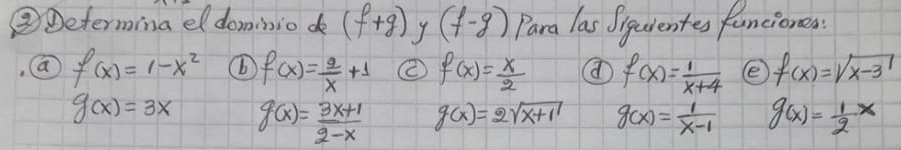 ② Determina el dominio de (f+g) y (f-g) Para las Siguientes funciones:
ⓐ f(x)=1-x² ⓑ f(x)=2/x +1 ⓒ f(x)=x/2 ⓓ f(x)=1/(x+4) ⓔ f(x)=√(x-3)
g(x)=3x g(x)=(3x+1)/(2-x) g(x)=2√(x+1) g(x)=1/(x-1) g(x)=1/2 x